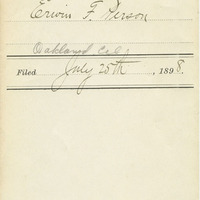 Erwin F. Person
Oakland, Cal.
Filed July 25th, 1898.